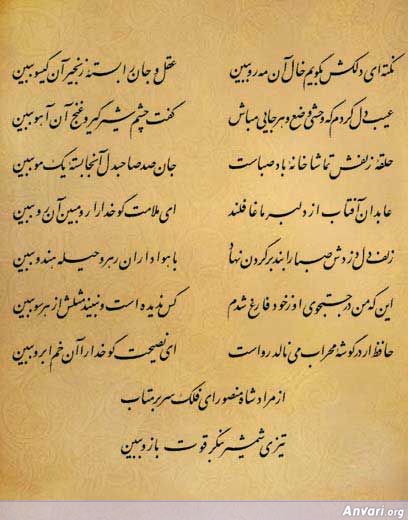 نکته‌ای دلکش بگویم خال آن مه رو ببین عقل و جان را بسته زنجیر آن گیسو ببین
عیب دل کردم که وحشی وضع و هر جایی مباش گفت چشم شیرگیر و غنج آن آهو ببین
حلقه زلفش تماشاخانه باد صباست جان صد صاحبدل آنجا بسته یک مو ببین
عابدان آفتاب از دلبر ما غافلند ای ملامت گو خدا را رو مبین آن رو ببین
زلف دل دزدش صبا را بند بر گردن نهاد با هواداران رهرو حیله هندو ببین
این که من در جستجوی او ز خود فارغ شدم کس ندیده است و نبیند مثلش از هر سو ببین
حافظ ار در گوشه محراب می نالد رواست ای نصیحت گو خدا را آن خم ابرو ببین
از مراد شاه منصور ای فلک سر بر متاب
تیزی شمشیر بنگر قوت بازو ببین
Anvari.org